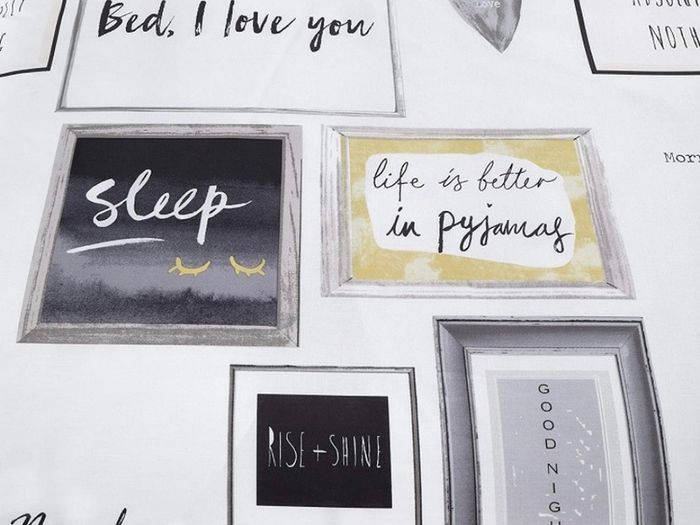 Bed, I love you
Love
NOTH
Morn
sleep
life is better
in pyjamas
RISE + SHINE
GOOD NIGH